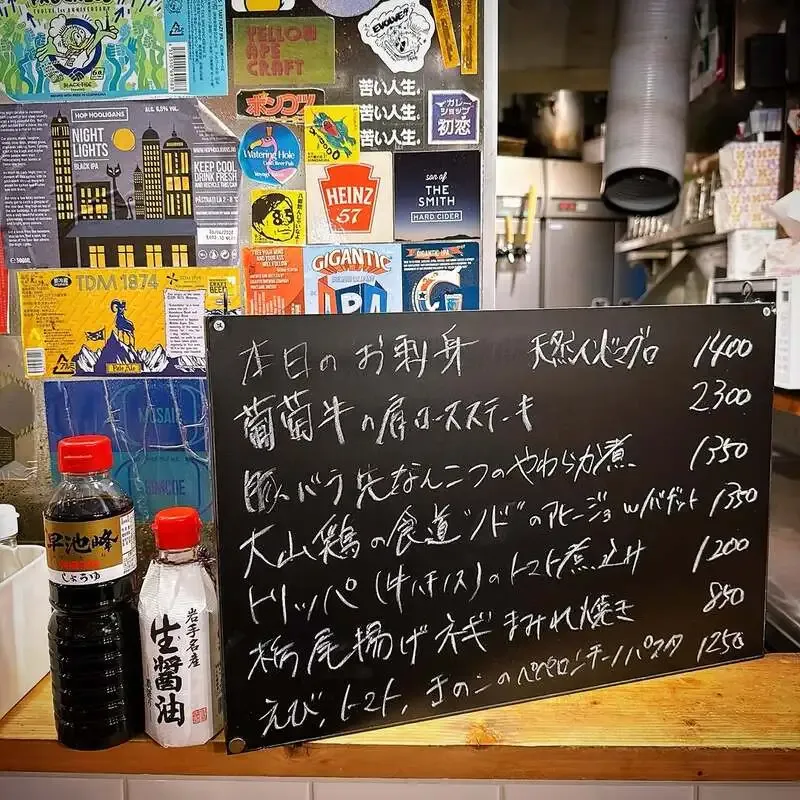 BLACK TIDE
YELLOW
APE
CRAFT
EVOLVE!!
苦い人生。
苦い人生。
苦い人生。
ポンコツ!!
カレー
ショップ
初恋
HOP HOOLIGANS
ALC. 6,5% VOL.
NIGHT
LIGHTS
BLACK IPA
KEEP COOL
DRINK FRESH
AND RECYCLE THIS CAN
Watering Hole
HEINZ
57
son of
THE
SMITH
HARD CIDER
GIGANTIC
IPA
TDM 1874
Pale Ale
MOSAIC
SIMCOE
早池峰
しょうゆ
岩手名産
生醤油
本日のお刺身 天然インドマグロ 1400
葡萄牛の肩ロースステーキ 2300
豚バラ先なんこつのやわらか煮 1350
大山鶏の食道"ノド"のアヒージョw/バゲット 1350
トリッパ(牛ハチノス)のトマト煮込み 1200
栃尾揚げネギまみれ焼き 850
えび、トマト、きのこのペペロンチーノパスタ 1250